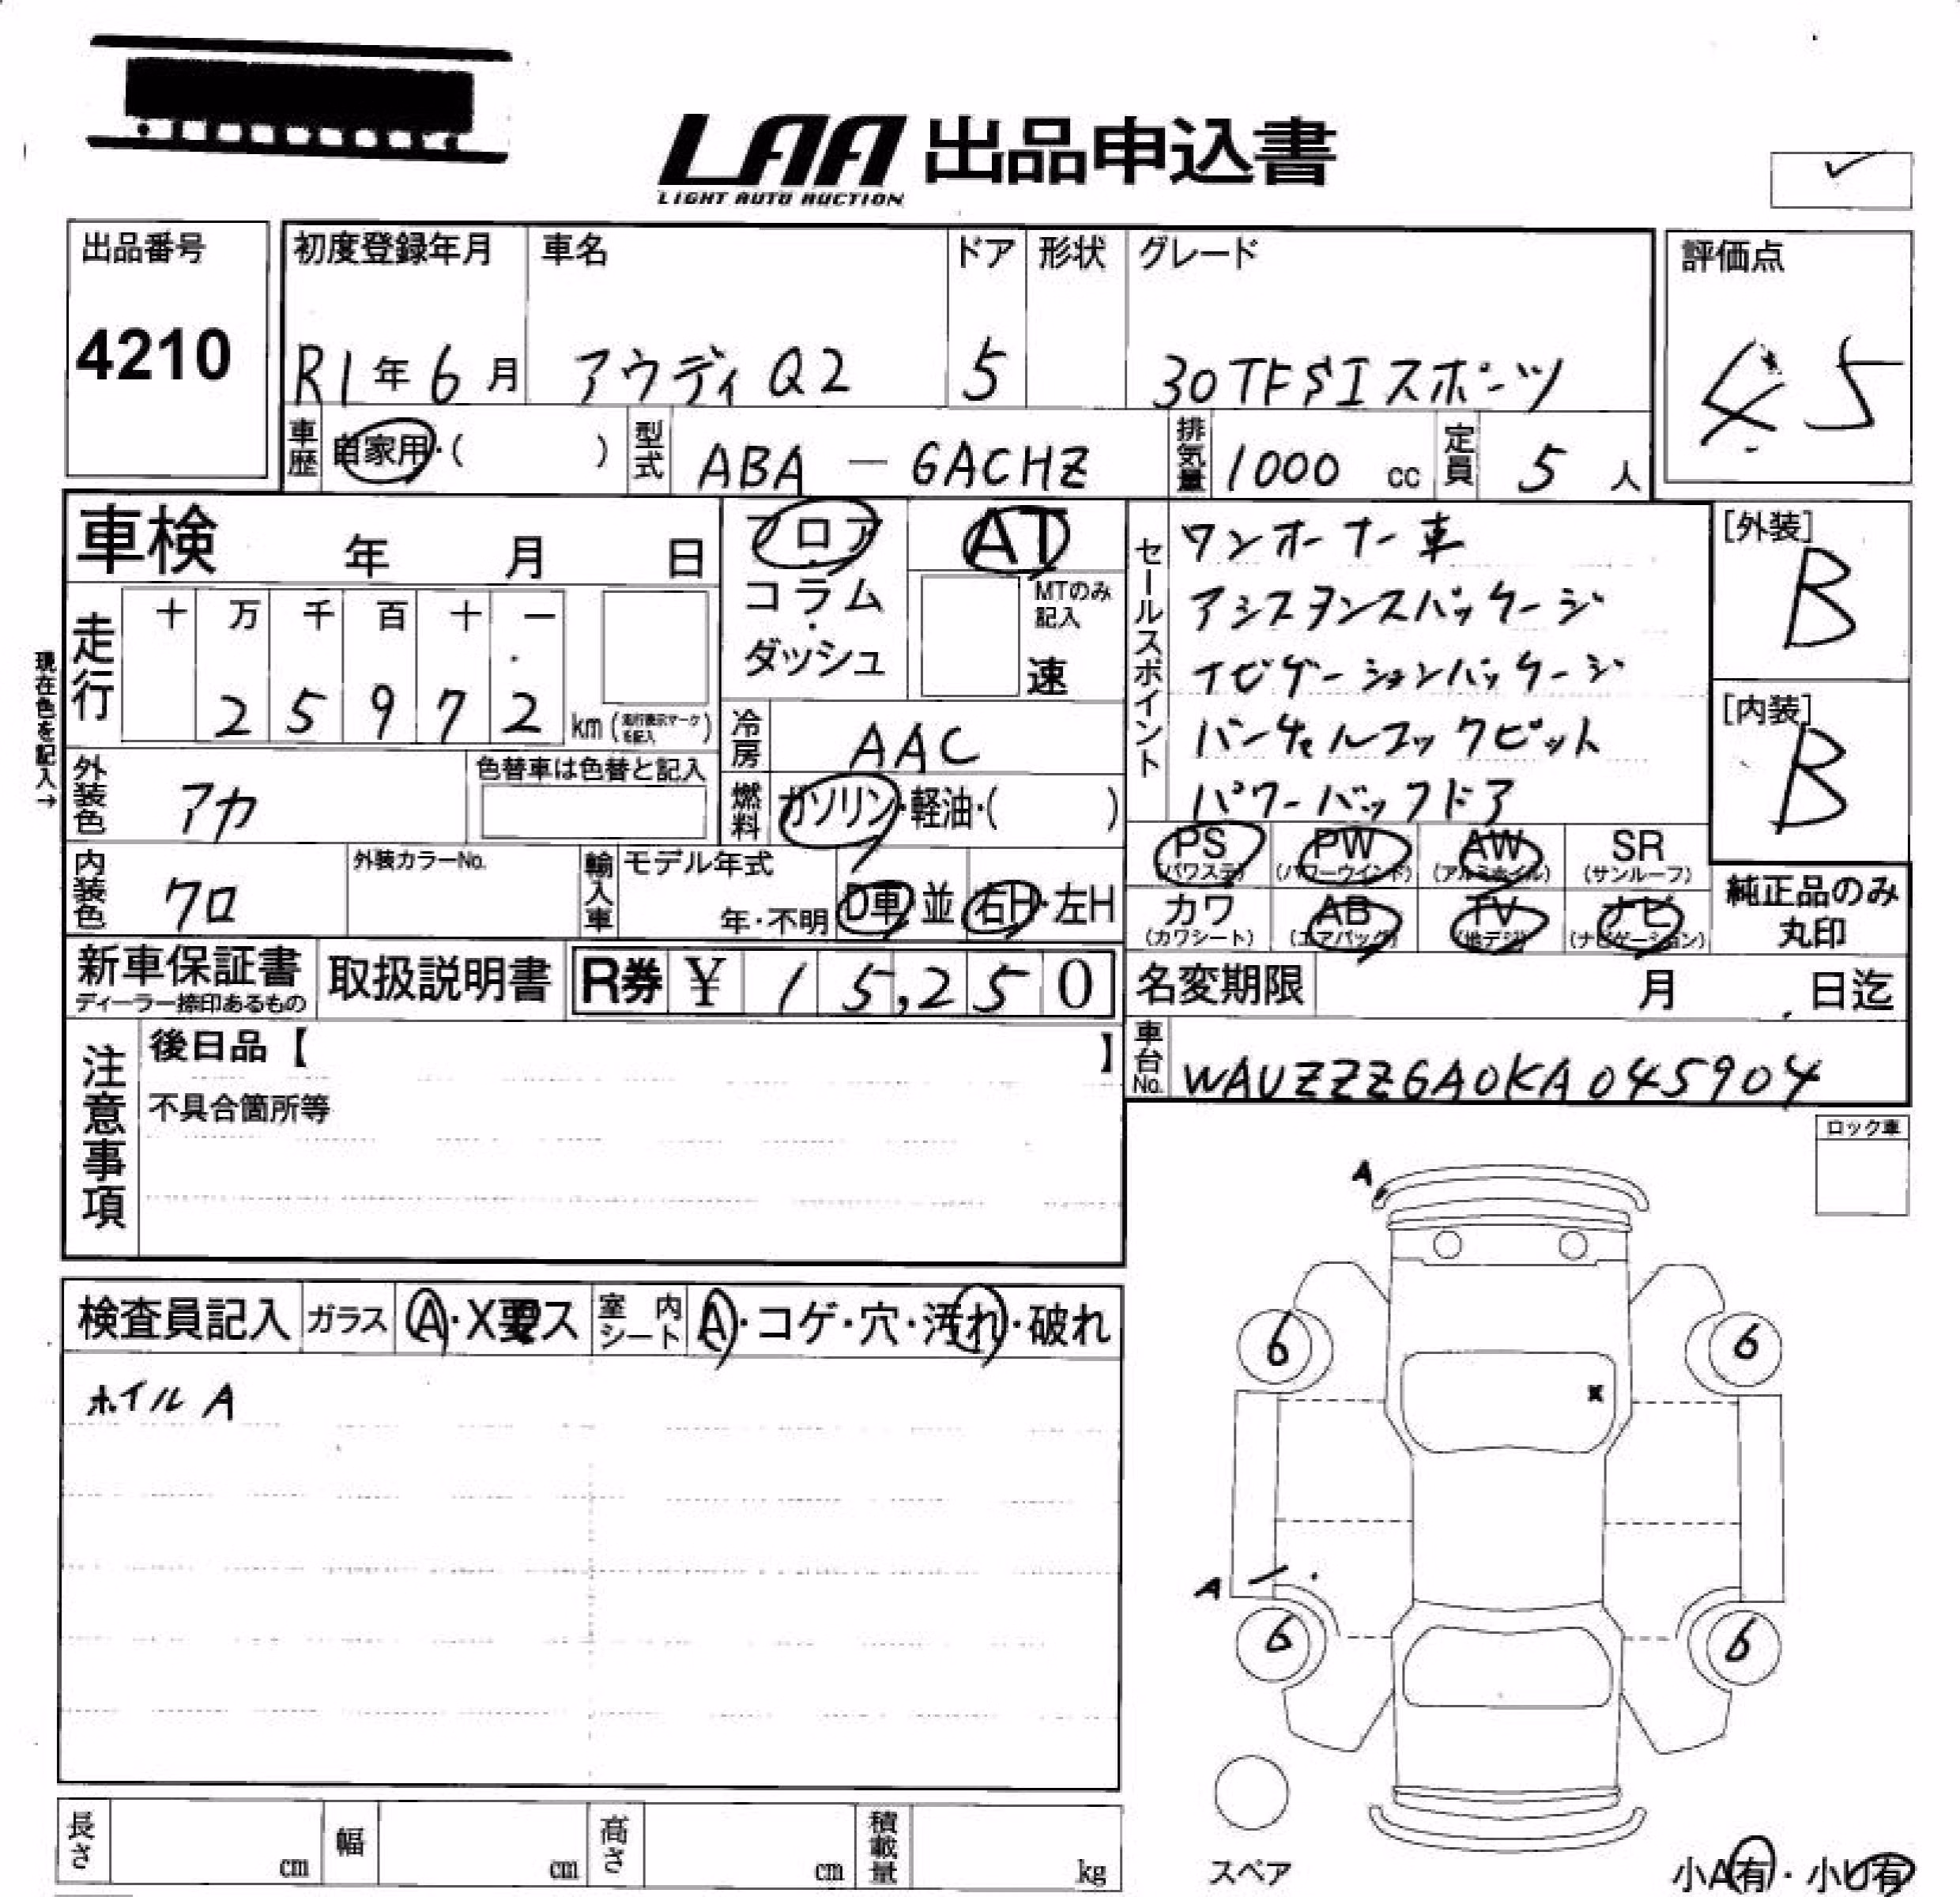 LAA 出品申込書
LIGHT AUTO AUCTION
出品番号
4210
初度登録年月
R1年6月
車名
アウディ Q2
ドア
5
形状
グレード
30TFSIスポーツ
評価点
4.5
車歴
自家用・( )
型式
ABA-GACHZ
排気量
1000 cc
定員
5 人
車検 年 月 日
フロア・コラム・ダッシュ
AT
MTのみ記入
速
セールスポイント
ワンオーナー車
アシスタンスパッケージ
ナビゲーションパッケージ
バーチャルコックピット
パワーバックドア
[外装]
B
[内装]
B
現在色を記入→
走行
十 万 千 百 十 一
2 5 9 7 2 km (走行表示マークを記入)
冷房
AAC
外装色
アカ
色替車は色替と記入
燃料
ガソリン・軽油・( )
内装色
クロ
外装カラーNo.
輸入車
モデル年式
年・不明
D車 並
右H・左H
PS (パワステ)
PW (パワーウインド)
AW (アルミホイル)
SR (サンルーフ)
カワ (カワシート)
AB (エアバッグ)
TV (地デジ)
ナビ (ナビゲーション)
純正品のみ丸印
新車保証書
ディーラー捺印あるもの
取扱説明書
R券 ¥ 15,250
名変期限 月 日迄
車台No.
WAUZZZGA0KA045904
注意事項
後日品【 】
不具合箇所等
ロック車
検査員記入
ガラス
A・X要ス
室内シート
A・コゲ・穴・汚れ・破れ
ホイルA
A
6 6
X
A
6 6
スペア
長さ cm
幅 cm
高さ cm
積載量 kg
小A有・小U有